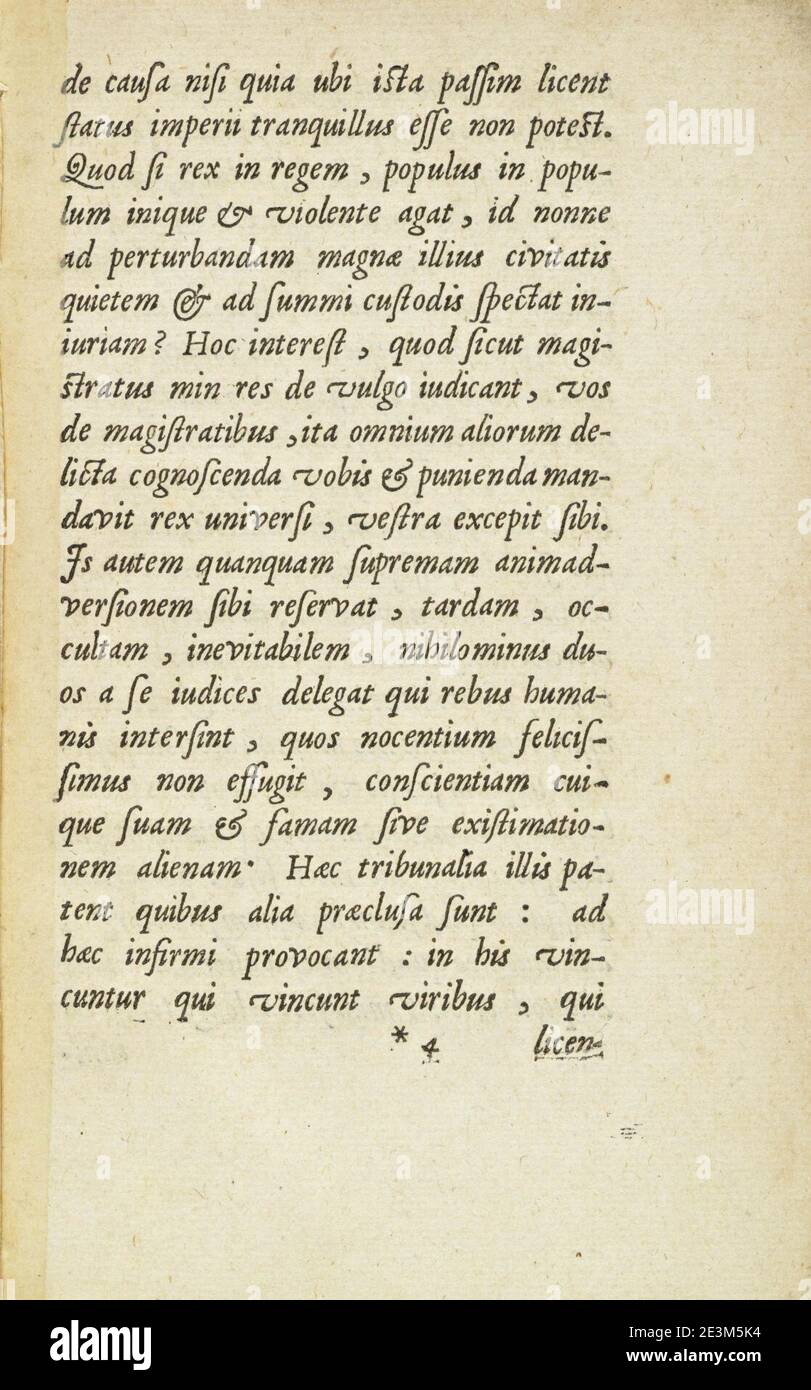 de cauſa niſi quia ubi iſta paſſim licent
ſtatus imperii tranquillus eſſe non poteſt.
Quod ſi rex in regem, populus in popu-
lum inique & violente agat, id nonne
ad perturbandam magnæ illius civitatis
quietem & ad ſummi cuſtodis ſpectat in-
iuriam? Hoc intereſt, quod ſicut magi-
ſtratus min res de vulgo iudicant, vos
de magiſtratibus, ita omnium aliorum de-
licta cognoſcenda vobis & punienda man-
davit rex univerſi, veſtra excepit ſibi.
Is autem quanquam ſupremam animad-
verſionem ſibi reſervat, tardam, oc-
cultam, inevitabilem, nihilominus du-
os a ſe iudices delegat qui rebus huma-
nis interſint, quos nocentium feliciſ-
ſimus non effugit, conſcientiam cui-
que ſuam & famam ſive exiſtimatio-
nem alienam. Hæc tribunalia illis pa-
tent quibus alia præcluſa ſunt : ad
hæc infirmi provocant : in his vin-
cuntur qui vincunt viribus, qui
* 4 licen-
alamy
alamy
alamy
alamy
Image ID: 2E3M5K4
www.alamy.com